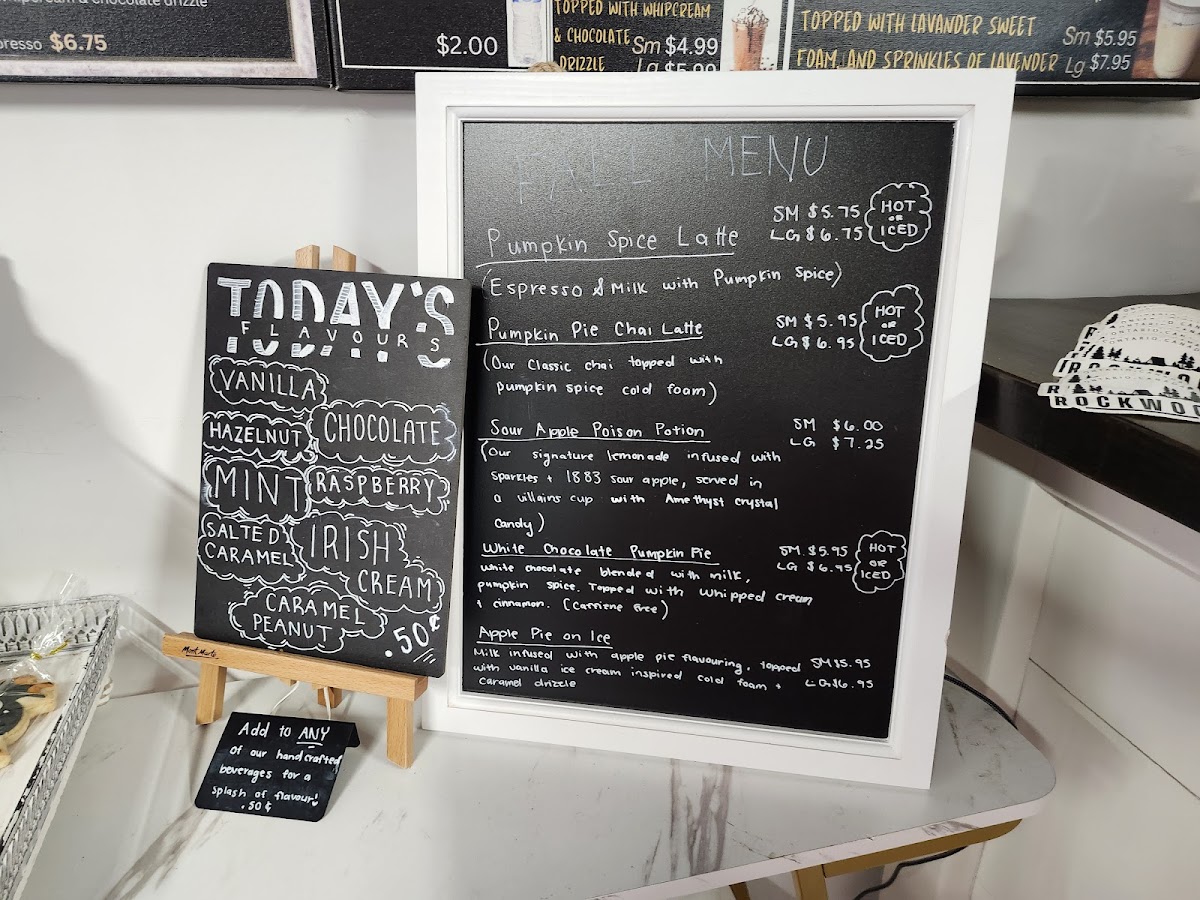 & chocolate drizzle
$6.75
$2.00
TOPPED WITH WHIPCREAM
& CHOCOLATE Sm $4.99
DRIZZLE
TOPPED WITH LAVANDER SWEET Sm $5.95
FOAM, AND SPRINKLES OF LAVENDER Lg $7.95
TODAY'S
FLAVOURS
VANILLA
HAZELNUT
CHOCOLATE
MINT
RASPBERRY
SALTED
CARAMEL
IRISH
CREAM
CARAMEL
PEANUT
.50¢
Mont Marte
Add to ANY
of our handcrafted
beverages for a
splash of flavour!
.50¢
FALL MENU
Pumpkin Spice Latte
SM $5.75
LG $6.75
HOT
OR
ICED
(Espresso & Milk with Pumpkin Spice)
Pumpkin Pie Chai Latte
SM $5.95
LG $6.95
HOT
OR
ICED
(Our Classic chai topped with
pumpkin spice cold foam)
Sour Apple Poison Potion
SM $6.00
LG $7.25
(Our signature lemonade infused with
sparkles + 1883 sour apple, served in
a villains cup with Amethyst crystal
candy)
White Chocolate Pumpkin Pie
SM $5.95
LG $6.95
HOT
OR
ICED
White chocolate blended with milk,
pumpkin spice. Topped with whipped cream
+ cinnamon. (Caffiene free)
Apple Pie on Ice
Milk infused with apple pie flavouring, topped
with vanilla ice cream inspired cold foam +
caramel drizzle
SM $5.95
LG $6.95
ROCKWO